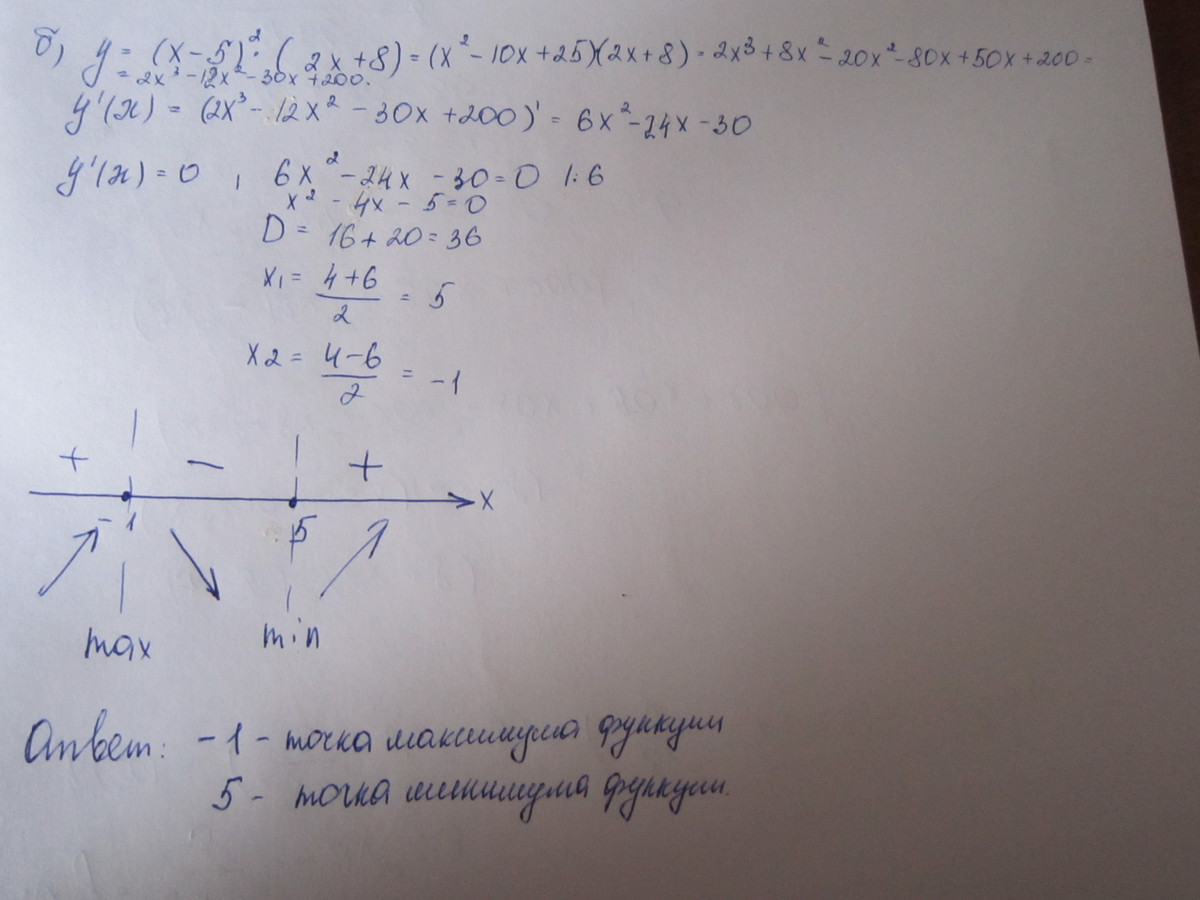 б) y = (x-5)²·(2x+8) = (x²-10x+25)(2x+8) = 2x³+8x²-20x²-80x+50x+200=
= 2x³-12x²-30x+200.
y'(x) = (2x³-12x²-30x+200)' = 6x²-24x-30
y'(x) = 0 , 6x²-24x-30=0 |:6
x²-4x-5=0
D = 16+20=36
x₁ = (4+6)/2 = 5
x2 = (4-6)/2 = -1
+ - +
-1 5 x
max min
Ответ: -1 - точка максимума функции
5 - точка минимума функции.